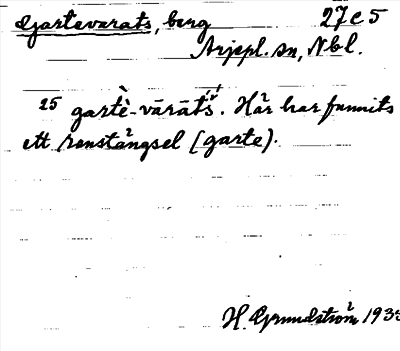 Gartevarats, berg 27e5
Arjepl. sn, Nbl.
25 gartè-vārāt́s̀. Här har funnits
ett renstängsel (garte).
H. Grundström 1935